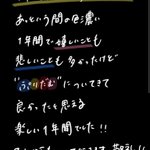 あっという間の色濃い
1年間で嬉しいことも
悲しいことも多かったけど
"ぷりりだむ"についてきて
良かったと思える
楽しい1年間でした!!